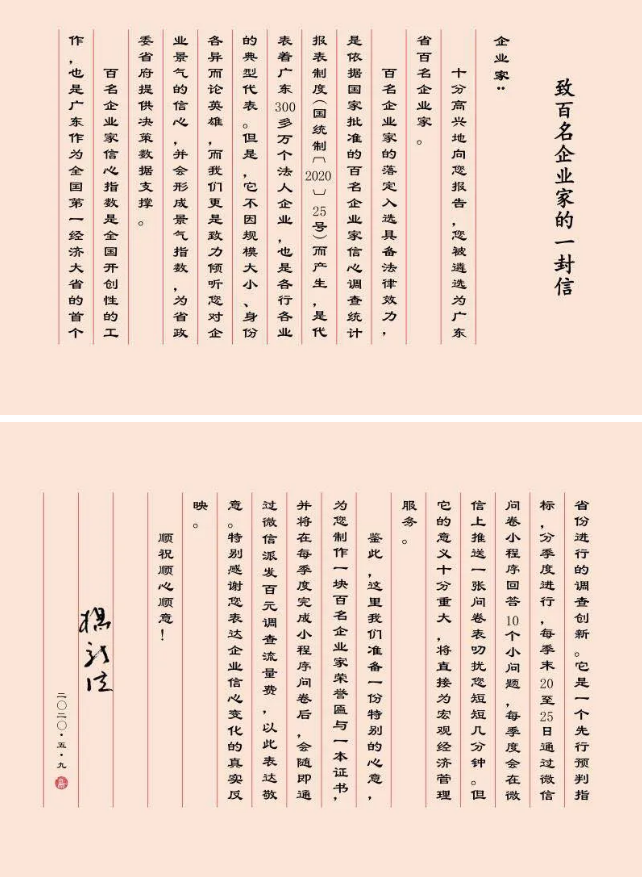 致百名企业家的一封信
企业家：
十分高兴地向您报告，您被遴选为广东
省百名企业家。
百名企业家的落定入选具备法律效力，
是依据国家批准的百名企业家信心调查统计
报表制度（国统制〔2020〕25号）而产生，是代
表着广东300多万个法人企业，也是各行各业
的典型代表。但是，它不因规模大小、身份
各异而论英雄，而我们更是致力倾听您对企
业景气的信心，并会形成景气指数，为省政
委省府提供决策数据支撑。
百名企业家信心指数是全国开创性的工
作，也是广东作为全国第一经济大省的首个
省份进行的调查创新。它是一个先行预判指
标，分季度进行，每季末20至25日通过微信
问卷小程序回答10个小问题，每季度会在微
信上推送一张问卷表叨扰您短短几分钟。但
它的意义十分重大，将直接为宏观经济管理
服务。
鉴此，这里我们准备一份特别的心意，
为您制作一块百名企业家荣誉匾与一本证书，
并将在每季度完成小程序问卷后，会随即通
过微信派发百元调查流量费，以此表达敬
意。特别感谢您表达企业信心变化的真实反
映。
顺祝顺心顺意！
二〇二〇·五·九